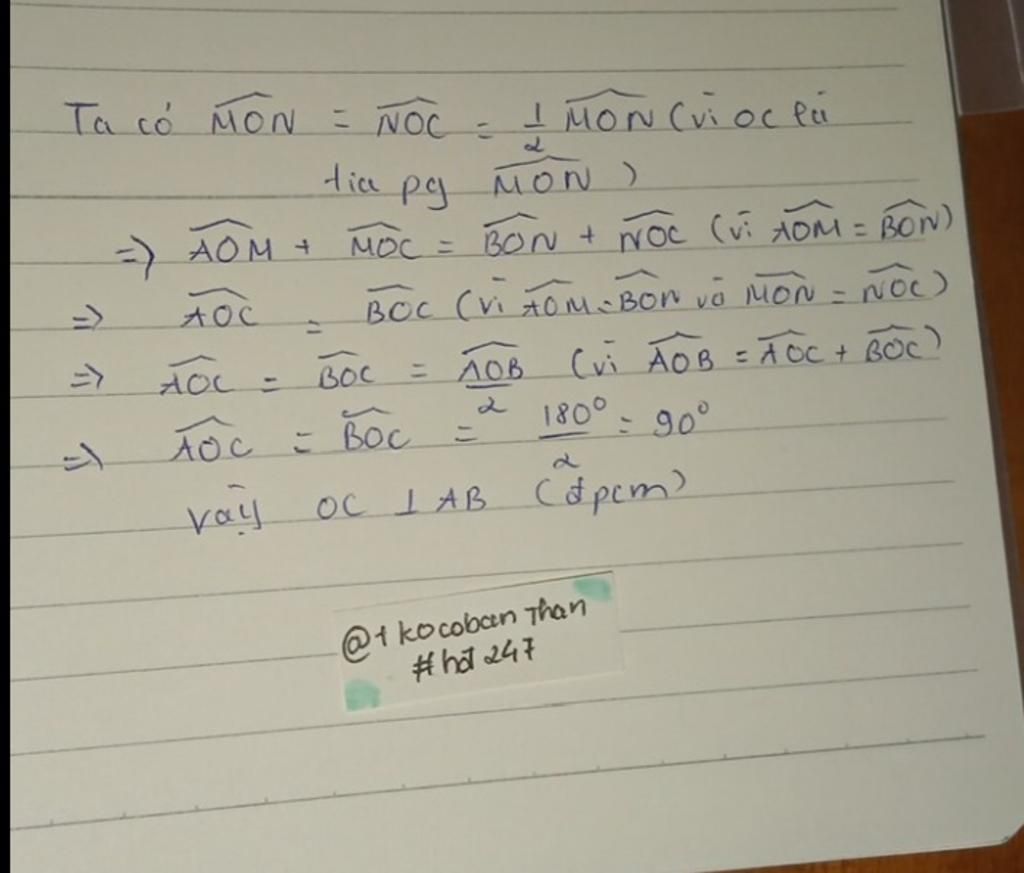 Ta có \widehat{MON} = \widehat{NOC} = \frac{1}{2} \widehat{MON} (vì OC là
tia pg \widehat{MON})
=> \widehat{AOM} + \widehat{MOC} = \widehat{BON} + \widehat{NOC} (vì \widehat{AOM} = \widehat{BON})
=> \widehat{AOC} = \widehat{BOC} (vì \widehat{AOM} = \widehat{BON} và \widehat{MON} = \widehat{NOC})
=> \widehat{AOC} = \widehat{BOC} = \frac{\widehat{AOB}}{2} (vì \widehat{AOB} = \widehat{AOC} + \widehat{BOC})
=> \widehat{AOC} = \widehat{BOC} = \frac{180°}{2} = 90°
Vậy OC ⊥ AB (đpcm)
@tkocobanThan
#hđ247